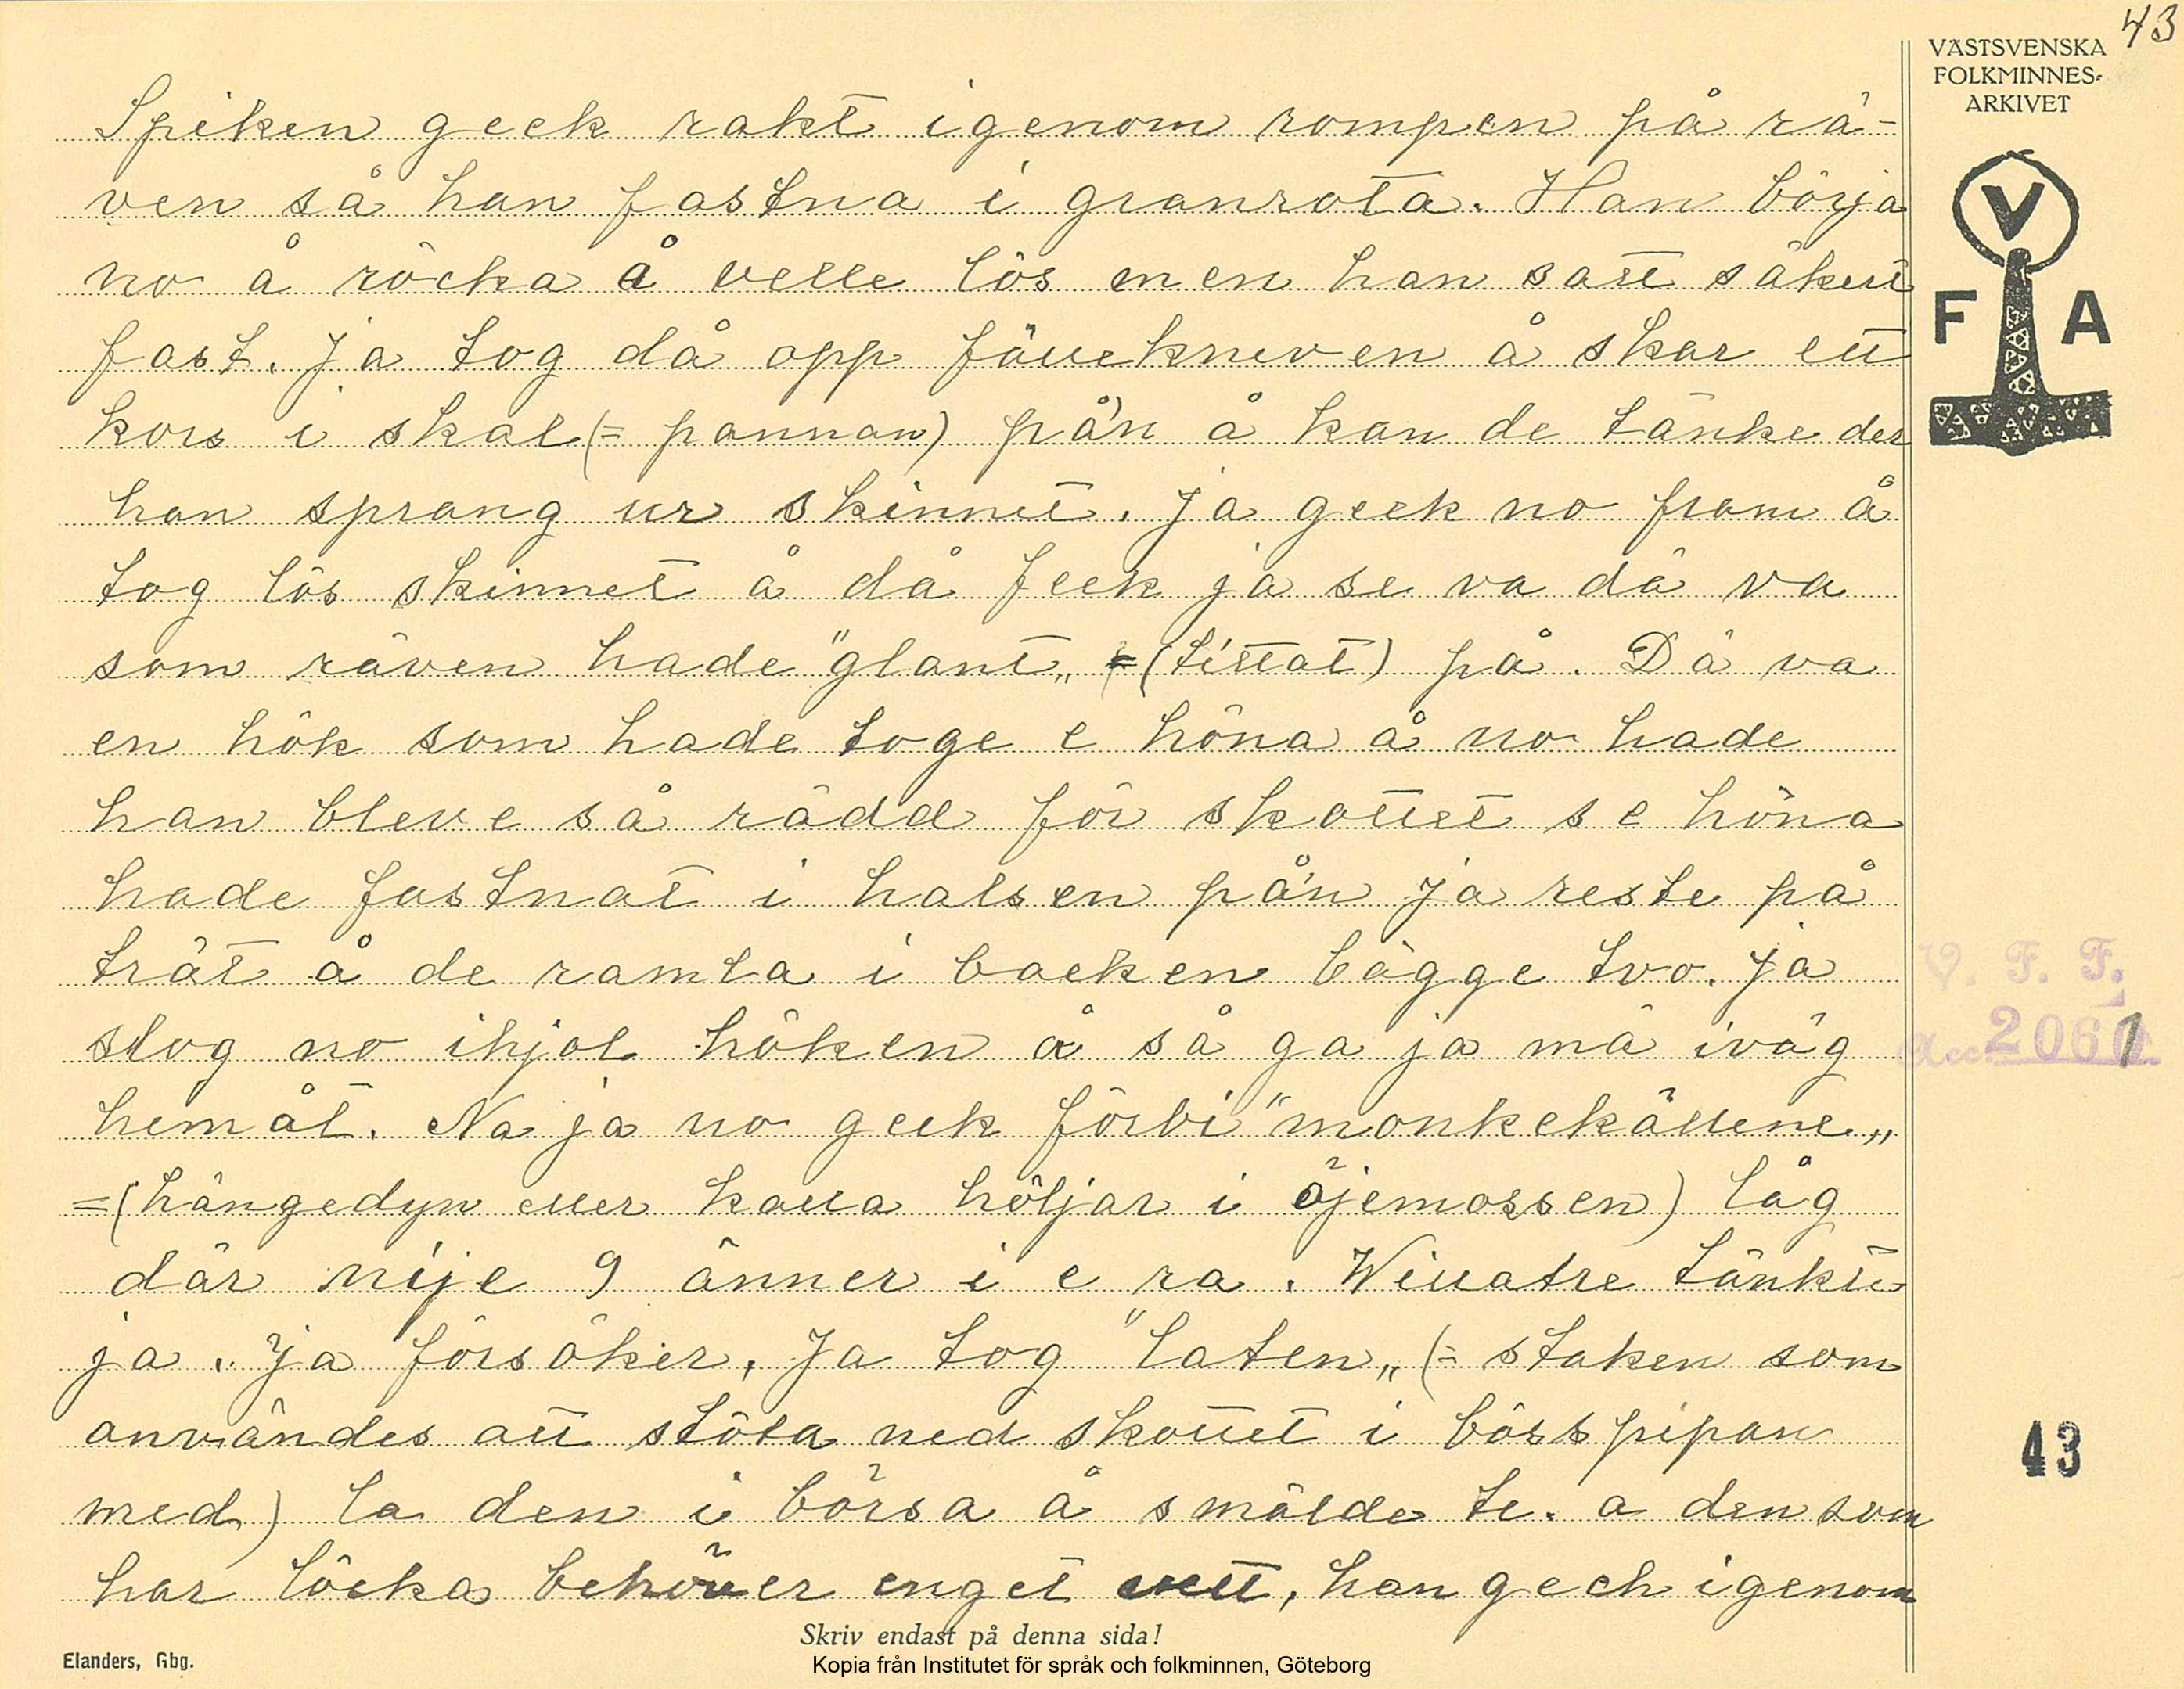 43
VÄSTSVENSKA
FOLKMINNES-
ARKIVET
Spiken geck rakt igenom rompen på rä-
ven så han fastna i granrota. Han börja
no å röcka å velle lös men han satt säkert
fast. Ja tog då opp fällekneven å skar ett
kors i skal (= pannan) på'n å kan de tänke der
han sprang ur skinnet. Ja geck no fram å
tog lös skinnet å då feck ja se va dä va
som räven hade "glant„ =(tittat) på. Dä va
en hök som hade toge e höna å no hade
han bleve så rädd för skottet se höna
hade fastnat i halsen på'n ja reste på
trät å de ramla i backen bägge tvo. Ja
slog no ihjäl höken å så ga ja mä iväg
hemåt. Na ja no geck förbi "monkekällene„
=(hängedyn eller kalla höljar i öjemossen) låg
där nije 9 änner i e ra. Willatre tänkte
ja. Ja försöker, Ja tog "laten„ (= staken som
användes att stöta ned skottet i bösspipan
med) la den i börsa å smälde te. a den som
har löcka behöver enget vett, han gech igenom
V F A
V. F. F.
Acc. 2061
43
Skriv endast på denna sida!
Elanders, Gbg.
Kopia från Institutet för språk och folkminnen, Göteborg